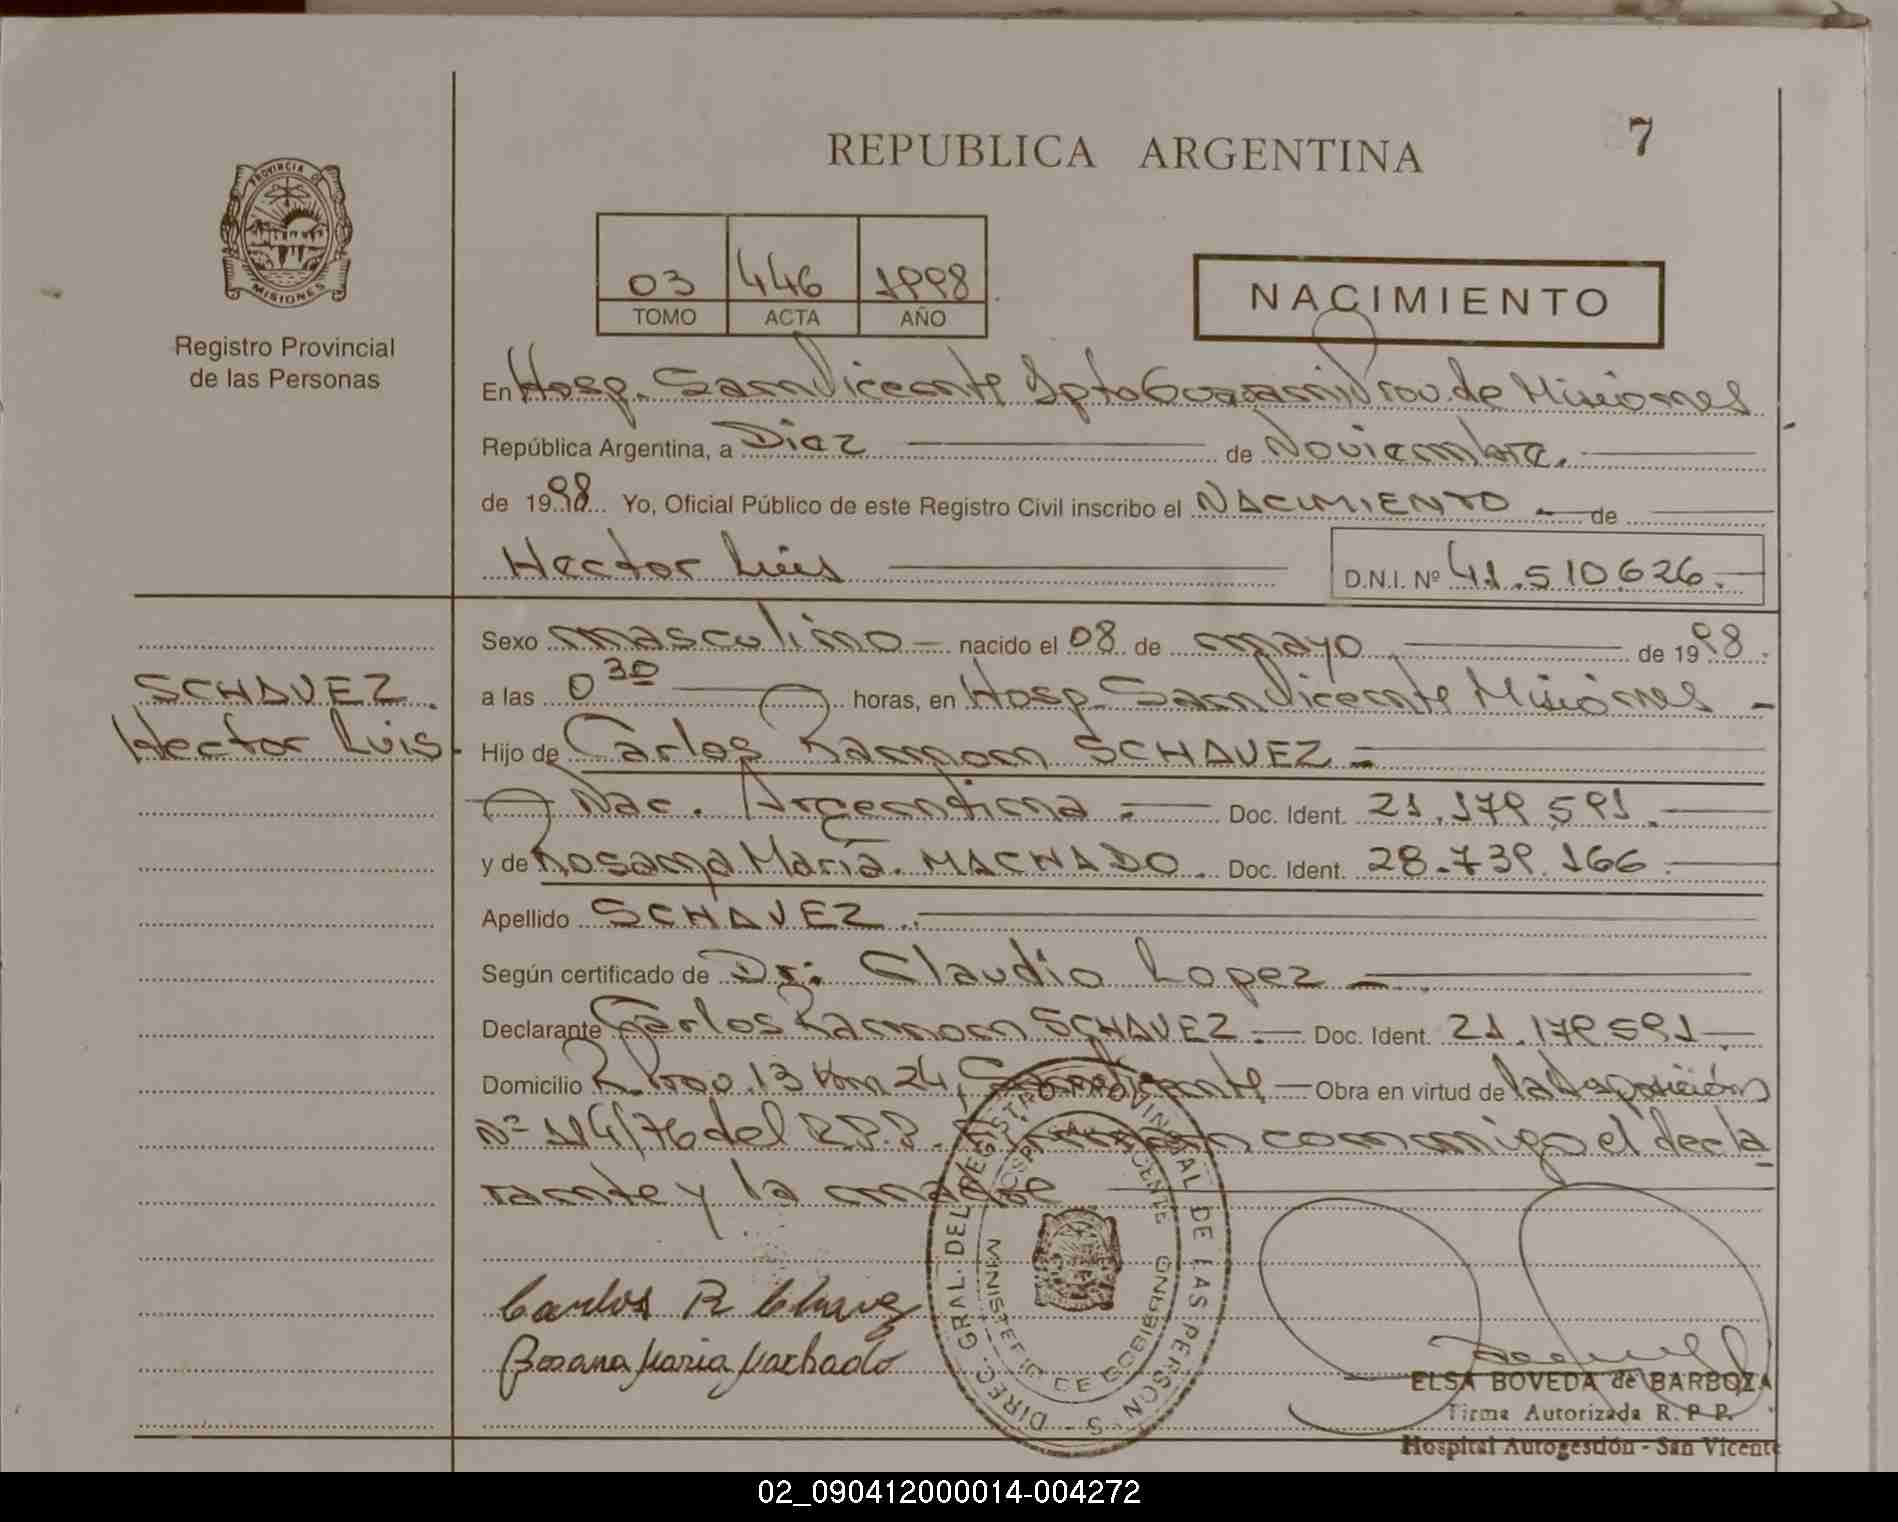 REPUBLICA ARGENTINA
7
PROVINCIA DE
MISIONES
Registro Provincial
de las Personas
03 446 1998
TOMO ACTA AÑO
NACIMIENTO
En Hosp. San Vicente Dpto Guarani Prov. de Misiones
República Argentina, a Diez de Noviembre.
de 1998 Yo, Oficial Público de este Registro Civil inscribo el NACIMIENTO de
Hector Luis D.N.I. Nº 41.510626.
SCHAVEZ.
Hector Luis.
Sexo masculino nacido el 08 de mayo de 1998.
a las 0 30 horas, en Hosp. San Vicente Misiones
Hijo de Carlos Ramon SCHAVEZ
Nac. Argentina. Doc. Ident. 21.179.591.
y de Rosana María. MACHADO. Doc. Ident. 28.739.166
Apellido SCHAVEZ.
Según certificado de Dr: Claudio Lopez
Declarante Carlos Ramon SCHAVEZ. Doc. Ident. 21.179.591
Domicilio 13 Km 24, San Vicente Obra en virtud de la Disposición
Nº 114/76 del R.P.P. Firman conmigo el decla
rante y la madre
Carlos R Chavez
Rosana Maria Machado
DIREC. GRAL. DEL REGISTRO PROVINCIAL DE LAS PERSONAS
MINISTERIO DE GOBIERNO
ELSA BOVEDA de BARBOZA
Firma Autorizada R. P. P.
Hospital Autogestión - San Vicente
02_090412000014-004272